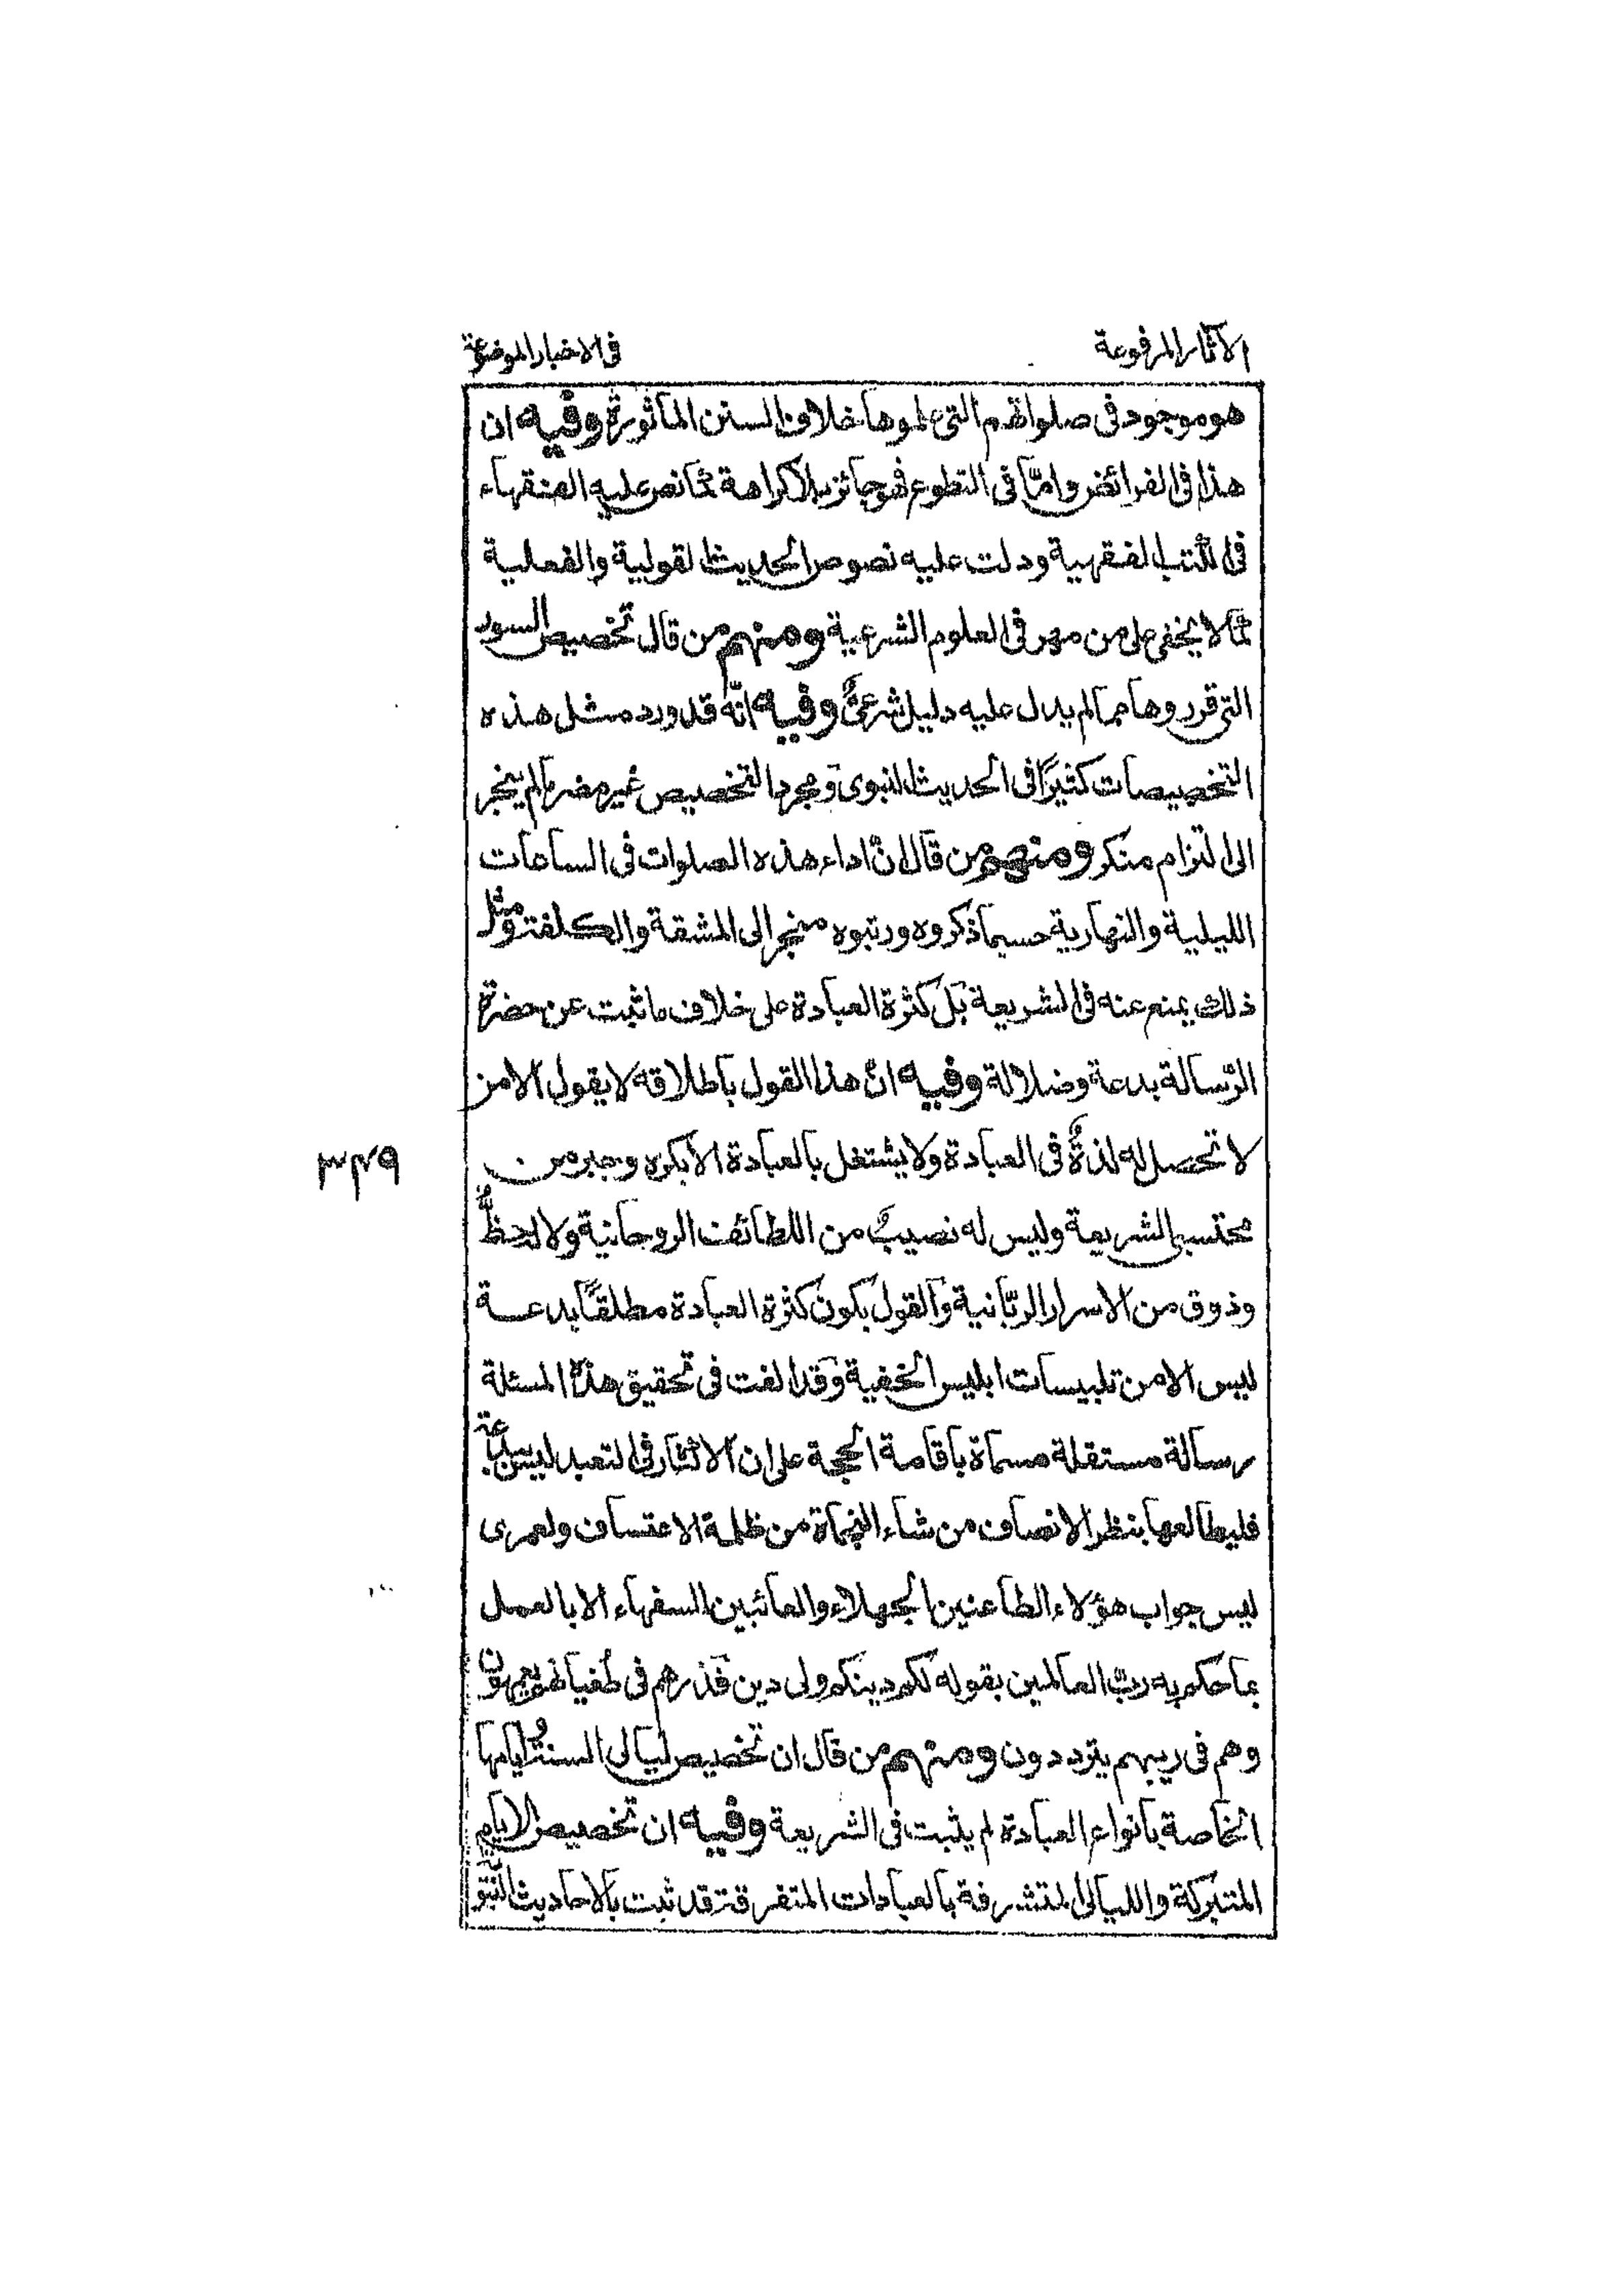 الآثار المرفوعة
فى الاخبار الموضوعة
هو موجود فى صلواتهم التى علموها خلاف السنن الماثورة وفيه ان
هذا فى الفرائض وامّا فى التطوع فهو جائز بلا كراهة كما نص عليه الفقهاء
فى الكتب الفقهية ودلت عليه نصوص الحديث القولية والفعلية
كما لا يخفى على من مهر فى العلوم الشرعية ومنهم من قال تخصيص السور
التى قرروها مما لم يدل عليه دليل شرعىٌّ وفيه انّه قد ورد مثل هذه
التخصيصات كثيرًا فى الحديث النبوى ومجرد التخصيص غير مضر ما لم ينجر
الى التزام منكر ومنهم من قال انّ اداء هذه الصلوات فى الساعات
الليلية والنهارية حسبما ذكروه ورتبوه منجر الى المشقة والكلفة ومثل
ذلك يمنع عنه فى الشريعة بل كثرة العبادة على خلاف ما ثبت عن حضرة
الرّسالة بدعة وضلالة وفيه انّ هذا القول باطلاقه لا يقول الا من
لا تحصل له لذةٌ فى العبادة ولا يشتغل بالعبادة الا بكره وجبر من
محتسب الشريعة وليس له نصيبٌ من اللطائف الروحانية ولا له حظٌّ
وذوق من الاسرار الربّانية والقول بكون كثرة العبادة مطلقًا بدعة
ليس الا من تلبيسات ابليس الخفية وقد الفت فى تحقيق هذه المسئلة
رسالة مستقلة مسماة باقامة الحجة على ان الاكثار فى التعبد ليس ببدعة
فليطالعها بنظر الانصاف من شاء النجاة من ظلمة الاعتساف ولعمرى
ليس جواب هؤلاء الطاعنين الجهلاء والعائبين السفهاء الا بالعمل
بما حكم به ربّ العالمين بقوله لكم دينكم ولى دين فذرهم فى طغيانهم يعمهون
وهم فى ريبهم يترددون ومنهم من قال ان تخصيص ليالى السنة وايامها
الخاصة بانواع العبادة لم يثبت فى الشريعة وفيه ان تخصيص الايام
المتبركة والليالى المتشرفة بالعبادات المتفرقة قد ثبت بالاحاديث
٣٤٩